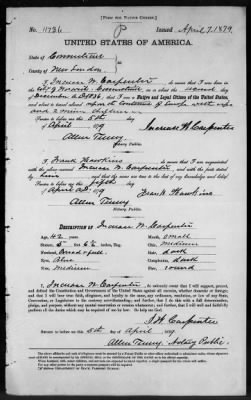 [FORM FOR NATIVE CITIZEN.]
No. 11736 Issued April 7, 1879
UNITED STATES OF AMERICA.
State of Connecticut
County of New London
I, Increase W. Carpenter do swear that I was born in
City of Norwich Connecticut on the second day
of December A.D. 1836 that I am a Native and Loyal Citizen of the United States,
and about to travel abroad
and 2 minor children
Sworn to before me this 5th day
of April 1879 Increase W Carpenter
Allen Tenny
Notary Public.
I, Frank Hawkins do swear that I am acquainted
with the above-named Increase W. Carpenter and with the facts
and that the same are true to the best of my knowledge and belief.
Sworn to before me this fifth day
of April A.D. 1879 Frank Hawkins
Allen Tenny
Notary Public.
DESCRIPTION OF Increase W. Carpenter
Age: 42 years Mouth: small
Stature: 5 feet 6½ inches, Eng. Chin: medium
Forehead: broad & full Hair: dark
Eyes: Blue Complexion: dark
Nose: medium Face: round
I, Increase W. Carpenter do solemnly swear that I will support, protect,
and defend the Constitution and Government of the United States against all enemies, whether domestic or foreign;
and that I will bear true faith, allegiance, and loyalty to the same, any ordinance, resolution, or law of any State,
Convention, or Legislature to the contrary notwithstanding; and further that I do this with a full determination,
pledge, and purpose, without any mental reservation or evasion whatsoever; and further that I will well and
faithfully perform all the duties which may be required of me by law. So help me God.
I. W. Carpenter
Sworn to before me this 5th day of April 1879
Allen Tenny, Notary Public.